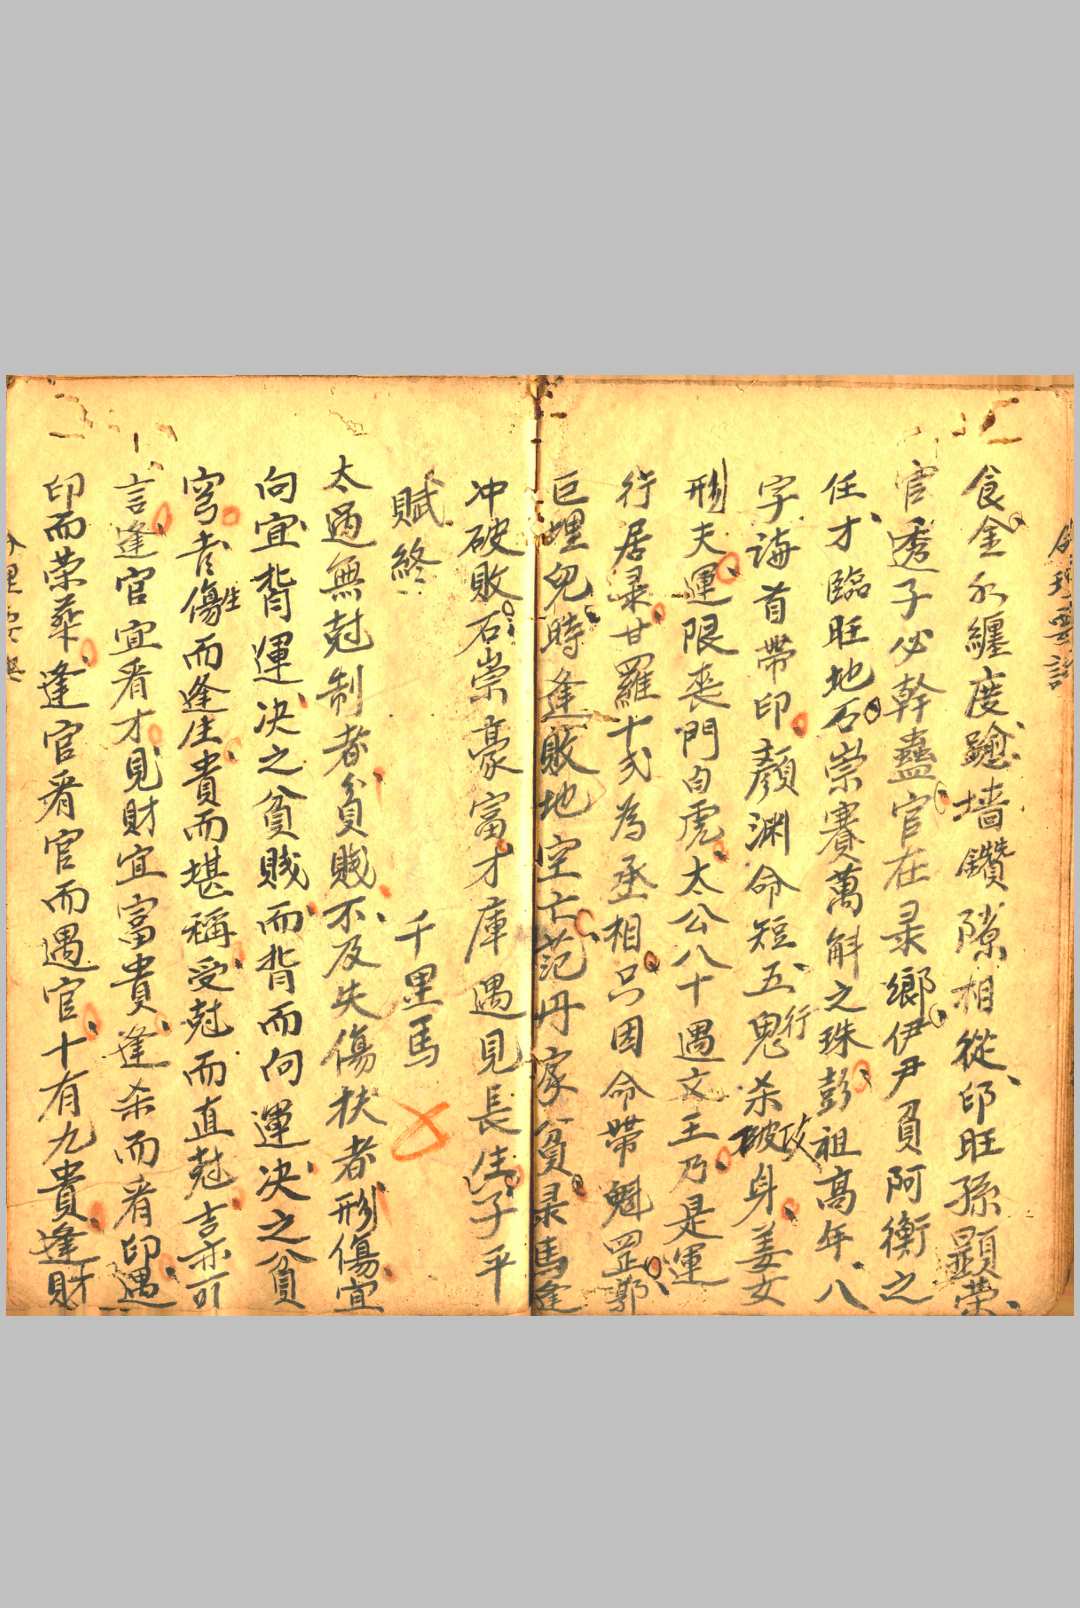 食金水纏度踰墻鑽隙相從印旺孫顕荣
官透子必幹蠱官在录鄉伊尹負阿衡之
任才臨旺地石崇賽萬斛之珠彭祖高年八
字誨首帶印顏渊命短五鬼行杀破身姜女
刑夫運限丧門白虎太公八十遇文王乃是運
行居录甘羅十弍為丞相只因命帶魁罡郭
巨埋兒時逢敗地空亡范丹家貧录馬逢
冲破敗石崇豪富才庫遇見長生子平
賦終
千里馬
太過無尅制者貧賎不及失傷扶者形傷宜
向宜背運决之貧賎而背而向運决之貧
穹者傷生而逢生貴而堪稱受尅而直尅吉亦可
言逢官宜看才見財宜富貴逢杀而看印遇
印而荣華逢官看官而遇官十有九貴逢財